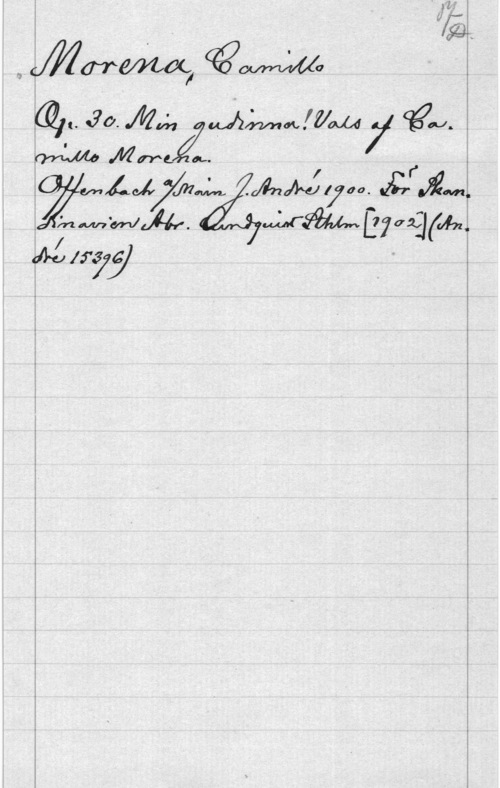 Morena, Camillo
Op. 30. Min gudinna! Vals af Ca-
millo Morena.
Offenbach a/Main J. André 1900. För Skan-
dinavien Abr. Lundquist Sthlm [1902] (An-
dré 15396)